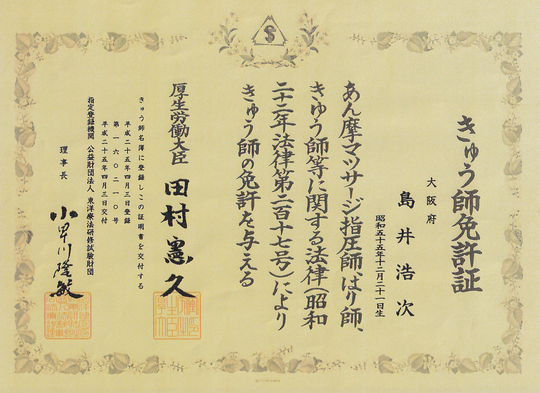 きゅう師免許証
大阪府
鳥井浩次
昭和五十五年十二月二十一日生
あん摩マッサージ指圧師、はり師、
きゅう師等に関する法律(昭和
二十二年法律第二百十七号)により
きゅう師の免許を与える
厚生労働大臣 田村憲久
きゅう師名簿に登録しこの証明書を交付する
平成二十五年四月三日登録
第一六〇二一〇号
平成二十五年四月三日交付
指定登録機関 公益財団法人 東洋療法研修試験財団
理事長 小早川隆敏